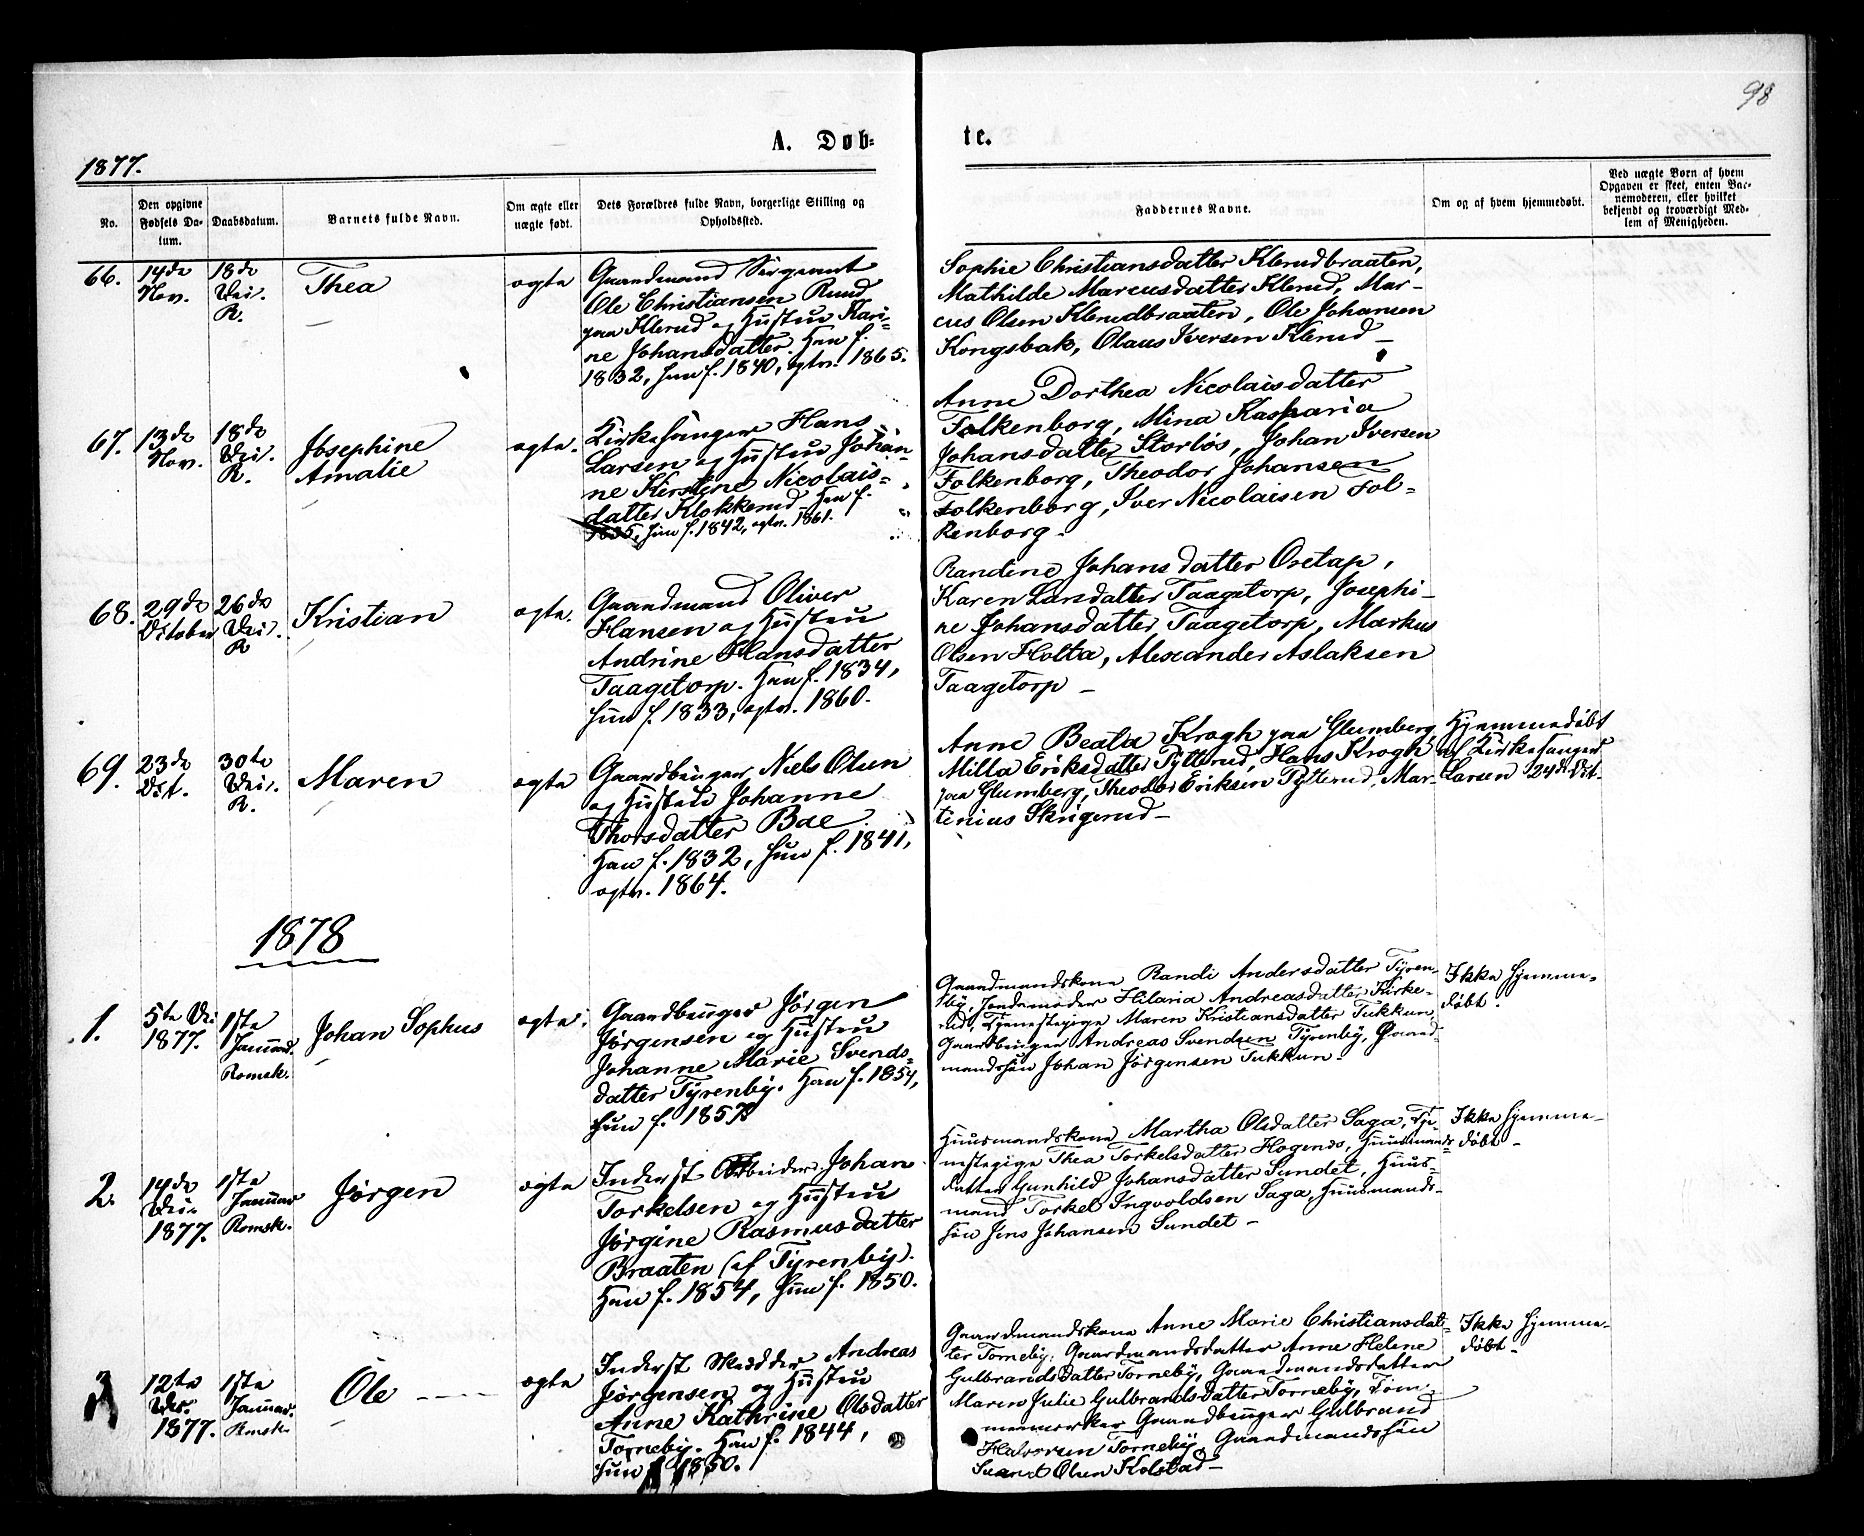 98
A. Døb- te.
1877.
No.
Den opgivne Fødsels Da-
tum.
Daabsdatum.
Barnets fulde Navn.
Om ægte eller
uægte født.
Dets Forældres fulde Navn, borgerlige Stilling og
Opholdssted.
Faddernes Navne.
Om og af hvem hjemmedøbt.
Ved uægte Børn af hvem
Opgaven er skeet, enten Bar-
nemoderen, eller hvilket
bekjendt og troværdigt Med-
lem af Menigheden.
66.
14de
Nov.
18de
Dec.
R.
Thea
ægte
Gaardmand Sergeant
Ole Christiansen Ruud
paa Klerud og Hustru Kari-
ne Johansdatter. Han f.
1832, hun f. 1840, ægtev. 1865.
Sophie Christiansdatter Klerudbraaten,
Mathilde Marcusdatter Klerud, Mar-
cus Olsen Klerudbraaten, Ole Johansen
Kongsbak, Olaus Iversen Klerud -
67.
13de
Nov.
18de
Dec.
R.
Josephine
Amalie
ægte.
Kirkesanger Hans
Larsen og Hustru Johan-
ne Kirstine Nicolais-
datter Klokkerud. Han f.
1835, hun f. 1842, ægtev. 1861.
Anne Dorthea Nicolaisdatter
Folkenborg, Mina Kasparia
Johansdatter Storløs, Johan Iversen
Folkenborg, Theodor Johansen
Folkenborg, Iver Nicolaisen Fol-
kenborg -
68.
29de
October
26de
Dec.
R
Kristian
ægte.
Gaardmand Oliver
Hansen og Hustru
Andrine Hansdatter
Taagetorp. Han f. 1834,
hun f. 1833, ægtev. 1860.
Randine Johansdatter Oretap,
Karen Larsdatter Taagetorp, Josephi-
ne Johansdatter Taagetorp, Markus
Olsen Holta, Alexander Aslaksen
Taagetorp -
69.
23de
Oct.
30te
Dec.
R.
Maren
ægte
Gaardbruger Niels Olsen
og Hustru Johanne
Thorsdatter Bae
Han f. 1832, hun f. 1841,
ægtev. 1864.
Anne Beata Krogh paa Glumberg,
Milla Eriksdatter Pytterud, Hans Krogh
paa Glumberg, Theodor Eriksen Pytterud, Mar-
tinius Skrigerud -
Hjemmedøbt
af Kirkesanger
Larsen 24de Oct.
1878
1.
5te Dec
1877.
1ste
Januar.
Romsk.
Johan Sophus
ægte.
Gaardbruger Jørgen
Jørgensen og Hustru
Johanne Marie Svends-
datter Tyrenby. Han f. 1854,
hun f. 1857
Gaardmandskone Randi Andersdatter Tyren-
by, Jordemoder Hilaria Andreasdatter Kirke-
rud, Tjenestepige Maren Kristiansdatter Tukkun,
Gaardbruger Andreas Svendsen Tyrenby, Gaard-
mandssøn Johan Jørgensen Tukkun -
Ikke hjemme-
døbt.
2.
14de
Dec.
1877.
1ste
Januar
Romsk.
Jørgen
ægte
Inderst Arbeider Johan
Torkelsen og Hustru
Jørgine Rasmusdatter
Braaten (af Tyrenby).
Han f. 1854, hun f. 1850.
Huusmandskone Martha Olsdatter Saga, Tje-
nestepige Thea Torkelsdatter Hogenes, Huusmands-
datter Gunhild Johansdatter Sundet, Huus-
mand Torkel Ingvoldsen Saga, Huusmands-
søn Jens Johansen Sundet -
Ikke hjemme-
døbt -
3
12te
Dec.
1877.
1ste
Januar.
Romsk.
Ole
ægte
Inderst Skrædder Andreas
Jørgensen og Hustru
Anne Kathrine Olsdatter
Torneby. Han f. 1844,
hun f. 1850.
Gaardmandskone Anne Marie Christiansdat-
ter Torneby, Gaardmandsdatter Anne Helene
Gulbrandsdatter Torneby, Gaardmandsdatter
Maren Julie Gulbrandsdatter Torneby, Tøm-
mermerker Gaardbruger Gulbrand
Halvorsen Torneby, Gaardmandssøn
Svend Olsen Kolstad -
Ikke hjemme-
døbt -